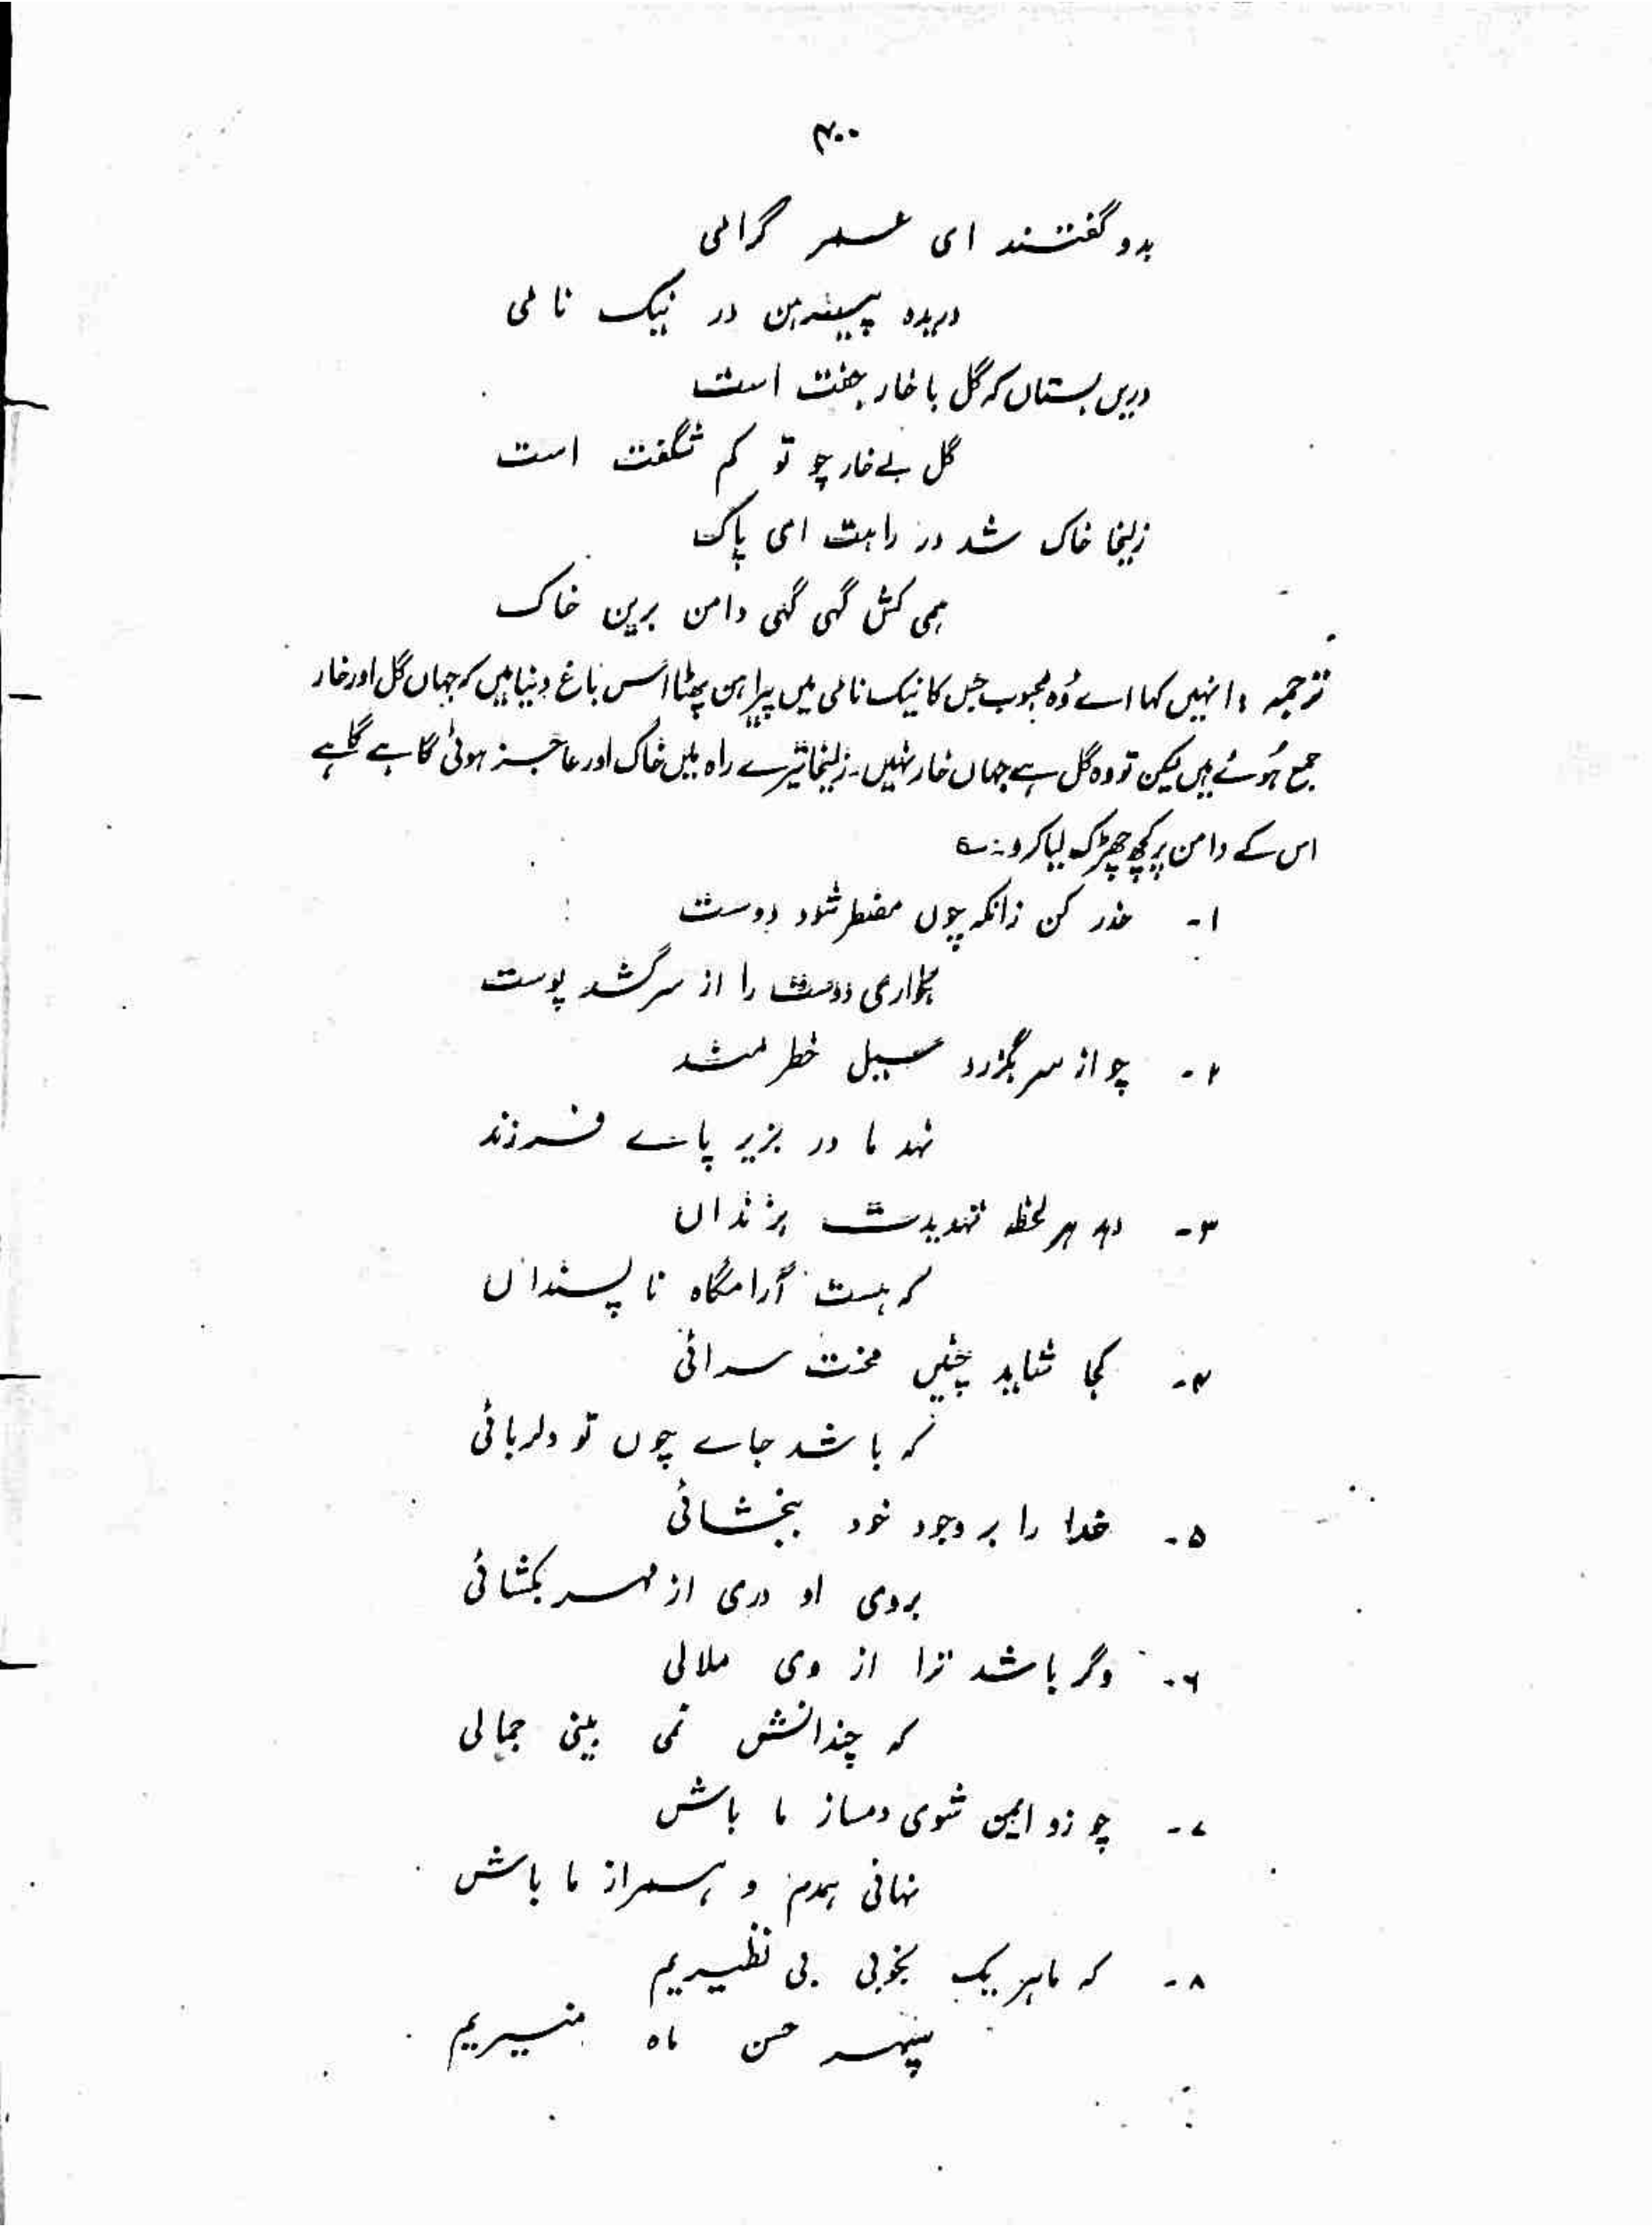 ۴۰۰
بدو گفتند ای عمر گرامی
دریده پیرہن در نیک نامی
دریں بستاں کہ گل با خار جفت است
گل بے خار چو تو کم شگفت است
زلیخا خاک شد در راہت ای پاک
ہمی کش گہی گہی دامن برین خاک
ترجمہ : انہیں کہا اے وُہ محبوب جس کا نیک نامی میں پیراہن پھٹا اس باغ دنیا میں کہ جہاں گل اور خار
جمع ہُوئے ہیں لیکن تو وہ گل ہے جہاں خار نہیں۔ زلیخا تیرے راہ میں خاک اور عاجز ہوئی گاہے گاہے
اس کے دامن پر کچھ چھڑک لیا کرو ؎
۱۔ حذر کن زانکہ چوں مضطر شود دوست
بخواری دوست را از سر کشد پوست
۲۔ چو از سر بگزرد سیل خطر مند
نہد مادر بزیر پاے فرزند
۳۔ دہد ہر لحظہ تہدیدت بزنداں
کہ ہست آرامگاہ نا پسنداں
۴۔ کجا شاید چنیں محنت سرائی
کہ باشد جاے چوں تو دلربائی
۵۔ خدا را بر وجود خود بخشائی
بروی او دری از مہر بکشائی
۶۔ وگر باشد ترا از وی ملالی
کہ چندانش نمی بینی جمالی
۷۔ چو زو ایمن شوی دمساز ما باش
نہانی ہمدم و ہمراز ما باش
۸۔ کہ ما ہر یک بخوبی بی نظیریم
سپہر حسن ماہ منیریم